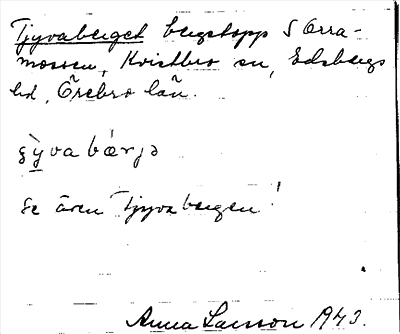 Tjyvaberget bergstopp S Orra-
mossen, Kvistbro sn, Edsbergs
hd, Örebro län.
ʂỳva bǽrjə
Se även Tjyvabergen!
Anna Larsson 1943.